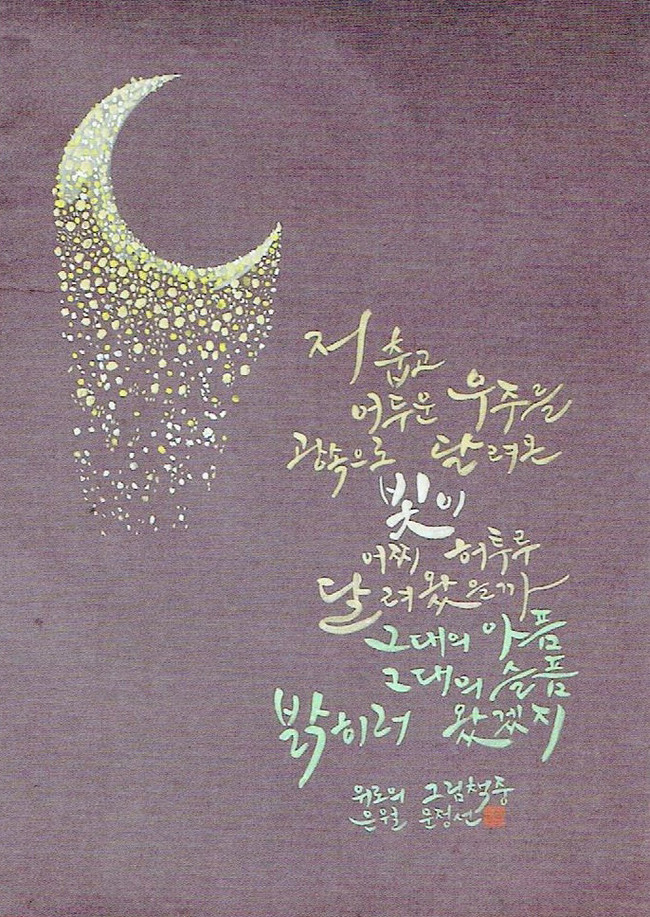 저 춥고
어두운 우주를
광속으로 달려온
빛이
어찌 허투루
달려왔을까
그대의 아픔
그대의 슬픔
밝히러 왔겠지
위로의 그림책 중
은월 문정선